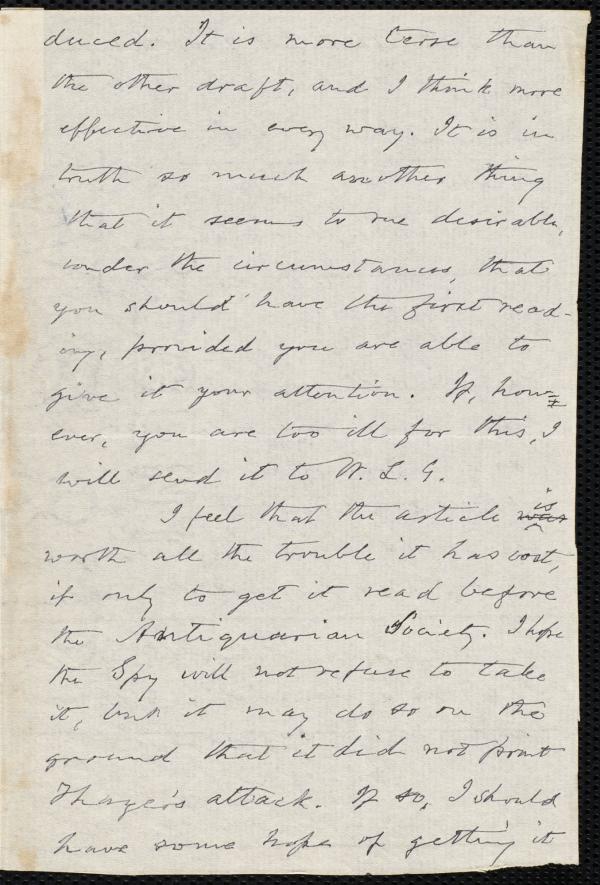 duced. It is more terse than
the other draft, and I think more
effective in every way. It is in
truth so much another thing
that it seems to me desirable,
under the circumstances, that
you should have the first read-
ing, provided you are able to
give it your attention. If, how-
ever, you are too ill for this, I
will send it to W. L. G.
I feel that the article was is
worth all the trouble it has cost,
if only to get it read before
the Antiquarian Society. I hope
the Spy will not refuse to take
it, but it may do so on the
ground that it did not print
Thayer's attack. If so, I should
have some hope of getting it